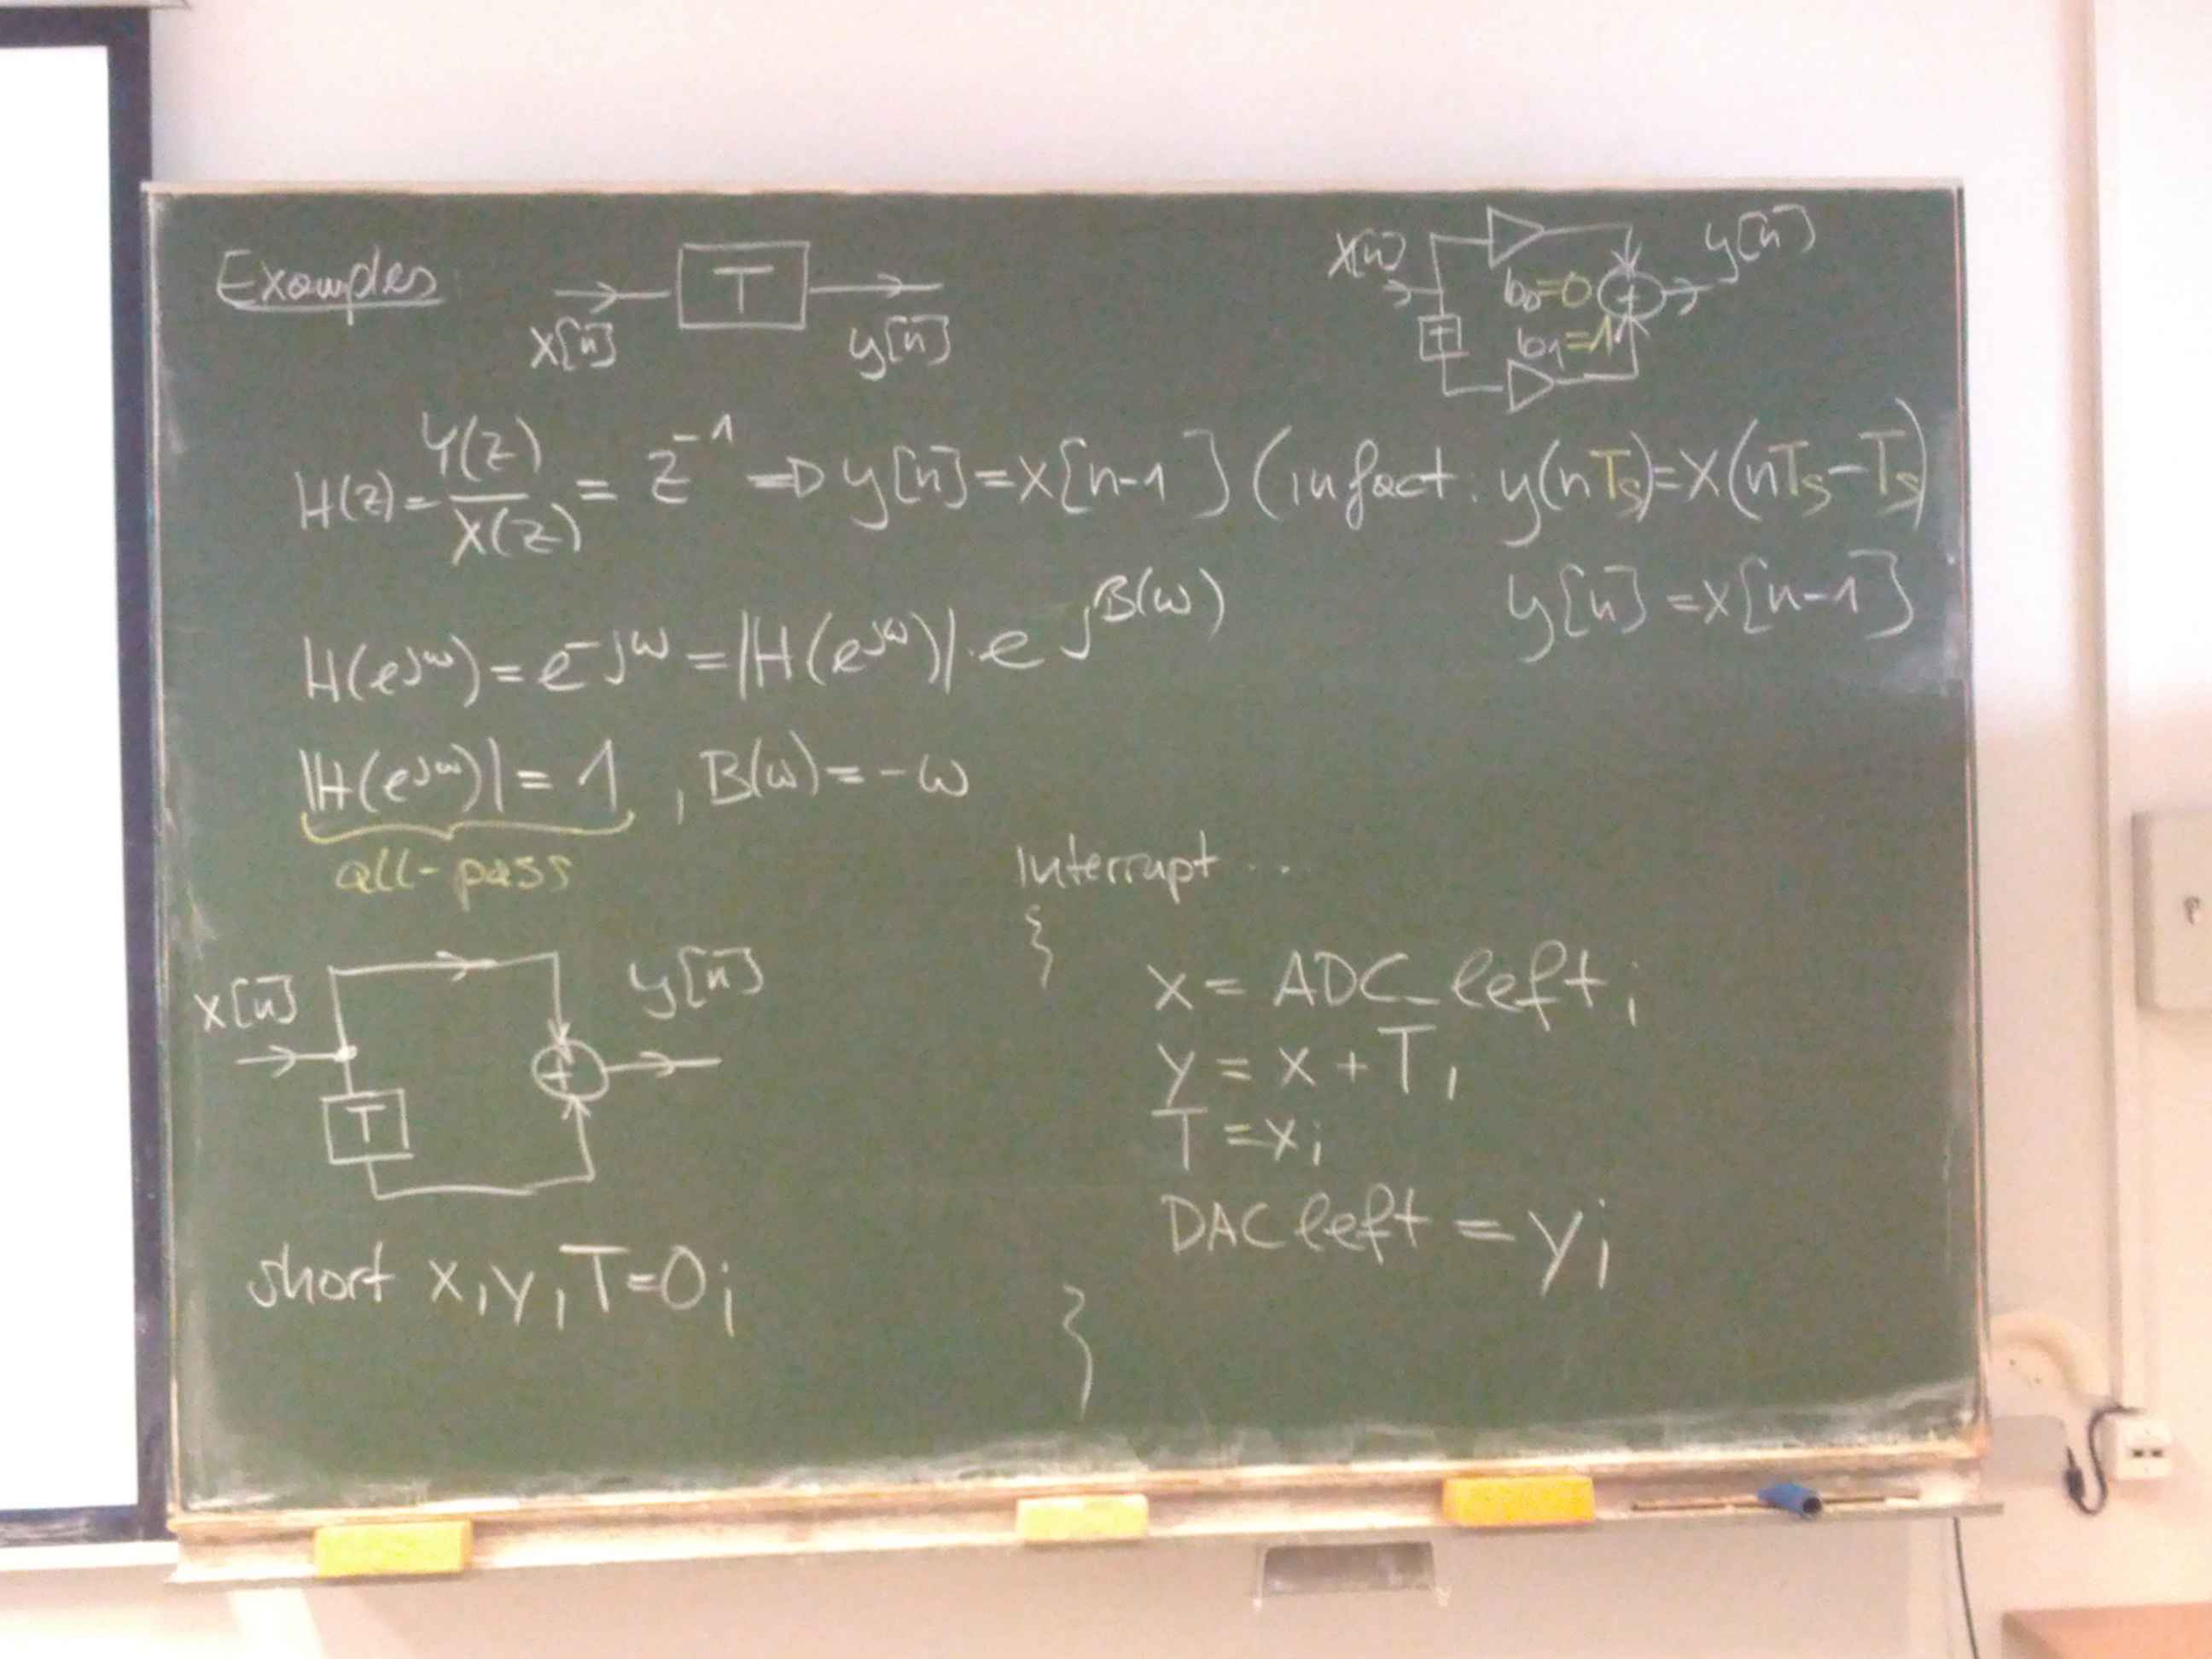 Examples
T
x[n]
y[n]
x[n]
y[n]
b₀=0
+
T
b₁=1
H(z)=Y(z)/X(z)=z⁻¹ => y[n]=x[n-1] (in fact: y(nTs)=x(nTs-Ts)
y[n]=x[n-1]
H(e^jω)=e^-jω=|H(e^jω)|·e^jB(ω)
|H(e^jω)|=1, B(ω)=-ω
all-pass
x[n]
y[n]
+
T
short x,y,T=0;
Interrupt ...
{
x = ADC_left;
y = x + T;
T = x;
DAC left = y;
}